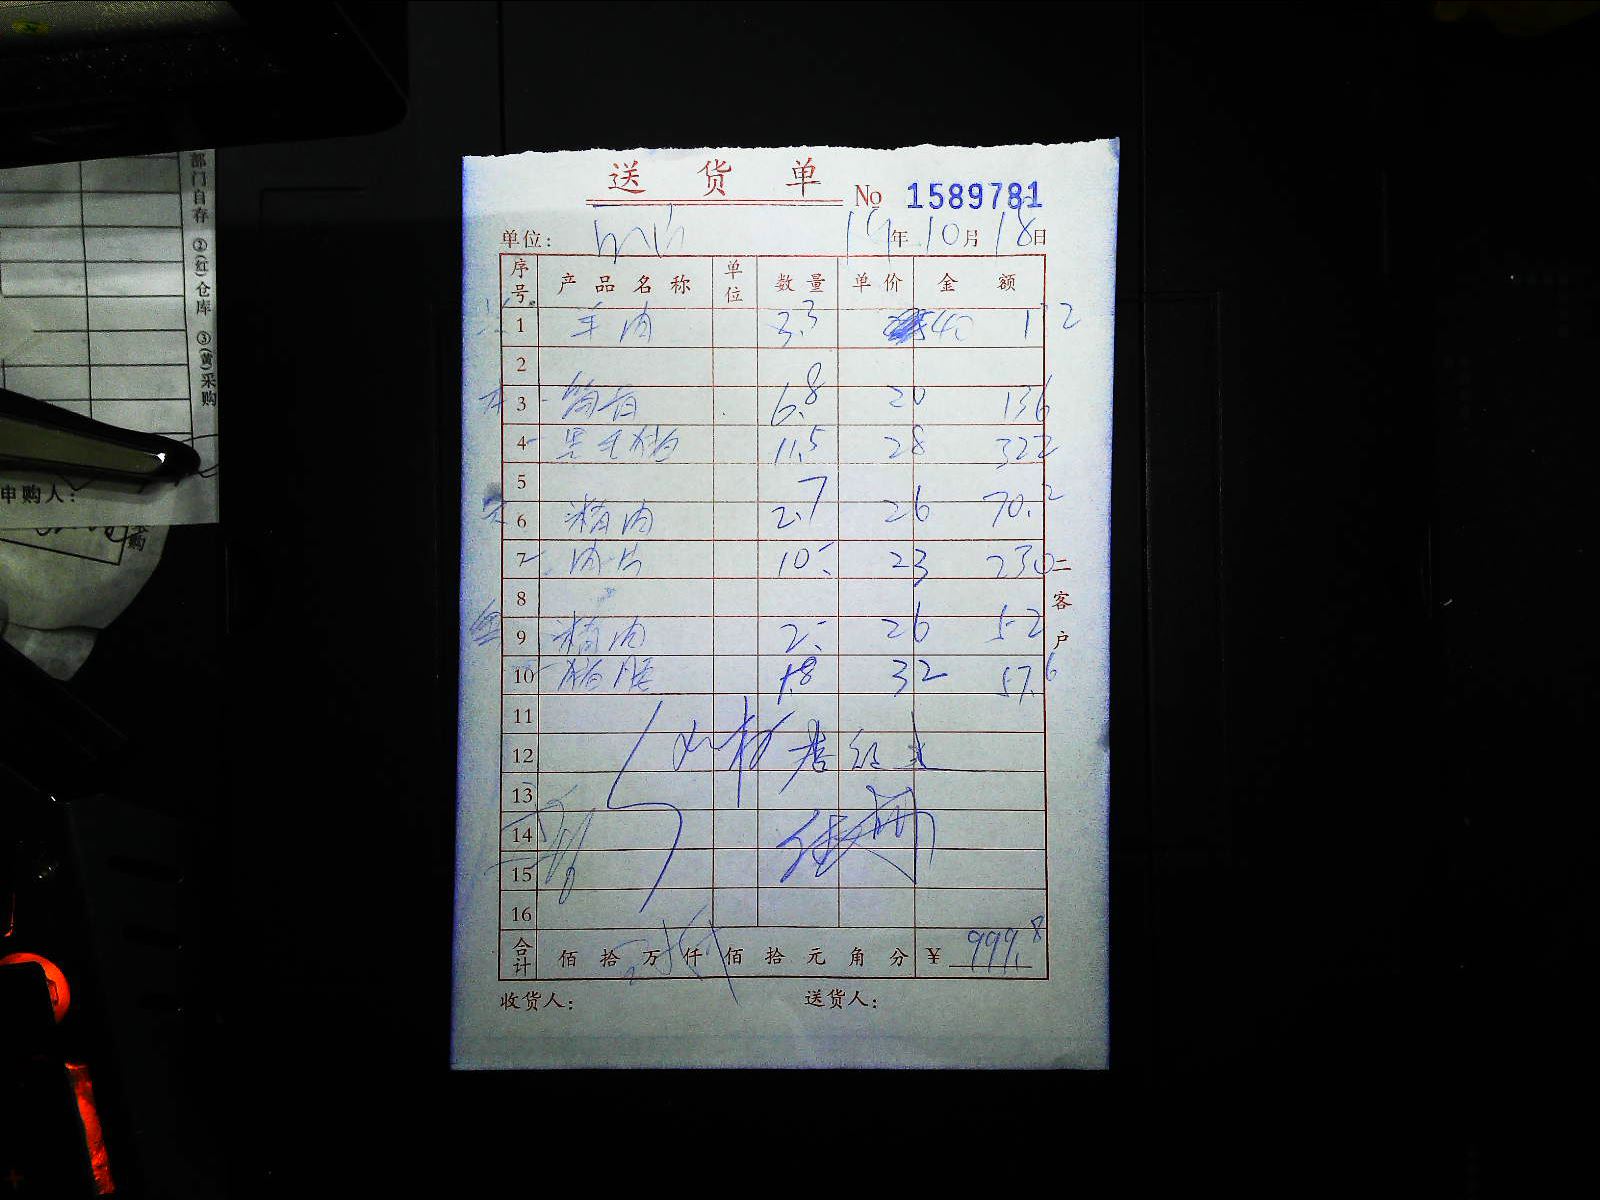 送货单 No 1589781
单位: 19年10月18日
序号 产品名称 单位 数量 单价 金额
1 羊肉 3.3 40 132
2
3 筒骨 6.8 20 136
4 黑毛猪 11.5 28 322
5
6 精肉 2.7 26 70.2
7 肉片 10 23 230
8
9 精肉 2 26 52
10 猪腰 1.8 32 57.6
11
12
13
14
15
16
合计 佰拾万仟佰拾元角分 ¥ 999.8
收货人: 送货人:
二客户
部门自存 ②(红)仓库 ③(黄)采购
申购人:
采购